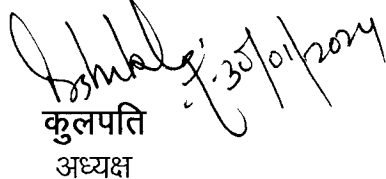 30/01/2024
कुलपति
अध्यक्ष